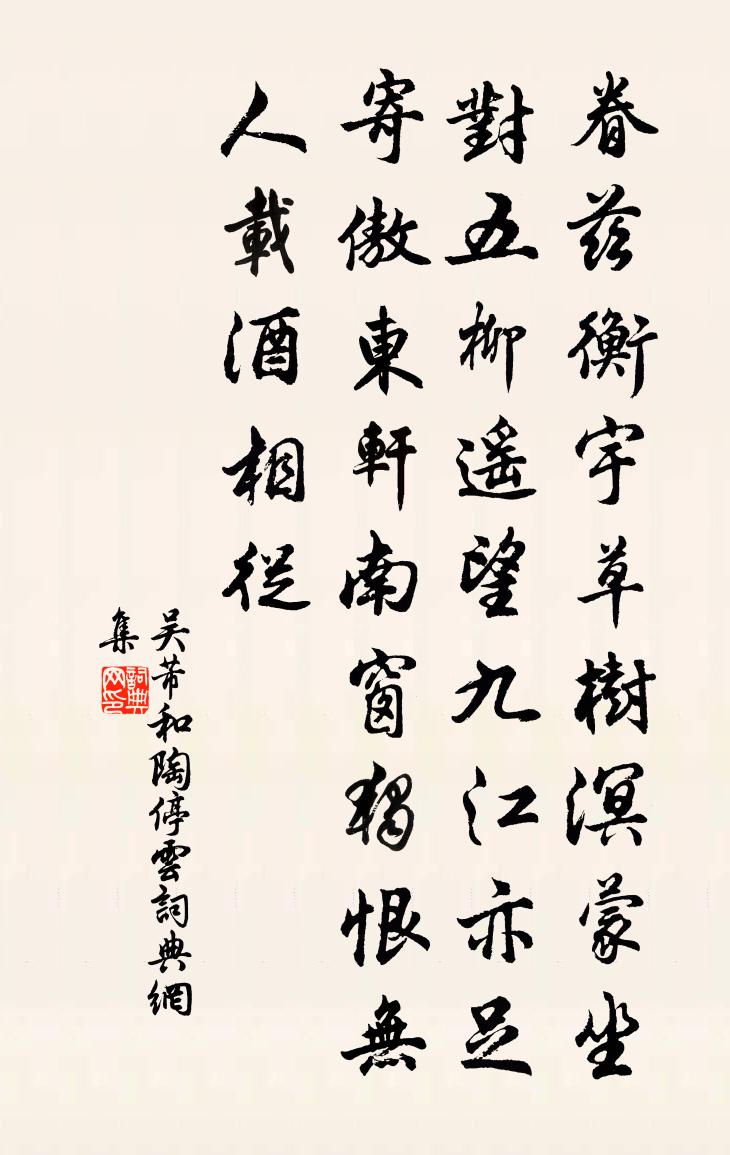 眷茲衡宇草樹溟蒙坐
對五柳遥望九江亦足
寄傲東軒南窗独恨無
人載酒相從
吴芾和陶停雲詞典網
集
詞典网印